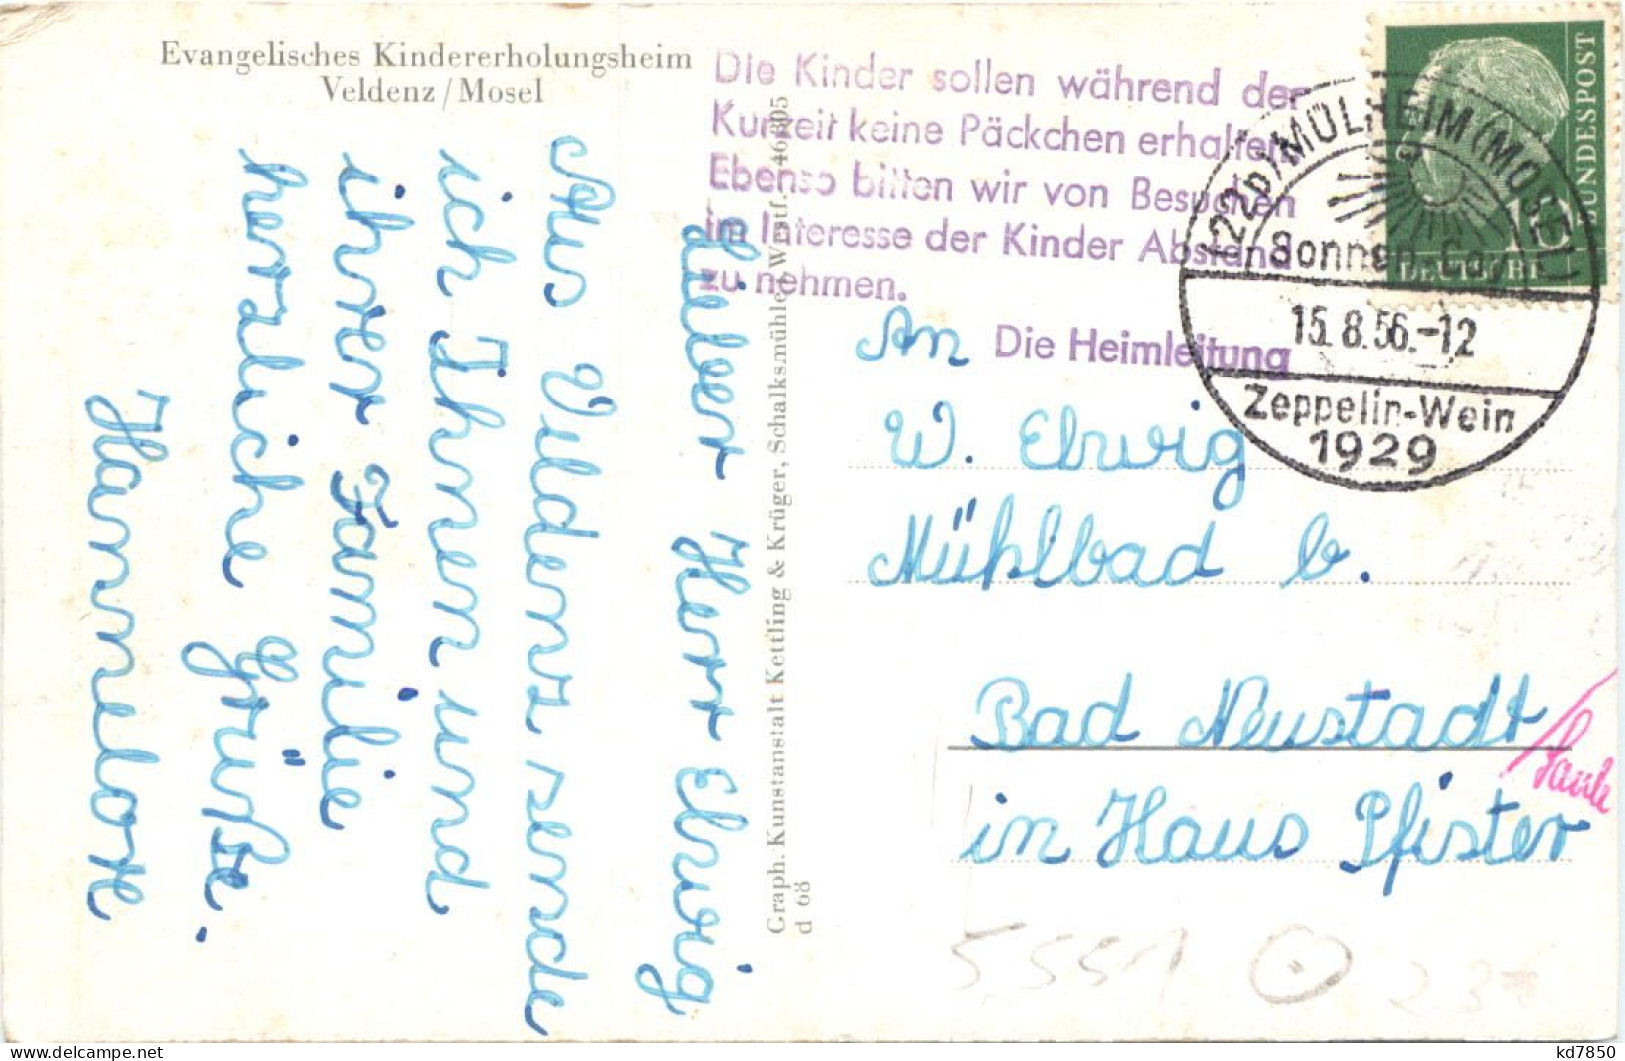 Evangelisches Kindererholungsheim
Veldenz/Mosel
Die Kinder sollen während der
Kurzeit keine Päckchen erhalten
Ebenso bitten wir von Besuchen
im Interesse der Kinder Abstand
zu nehmen.
Die Heimleitung
BUNDESPOST
10
DEUTSCHE
(22b) MÜLHEIM (MOSEL)
Sonnen
15.8.56.-12
Zeppelin-Wein
1929
Lieber Herr Elwig
Aus Veldenz sende
ich Ihnen und
ihrer Familie
herzliche Grüße.
Hannelore
Graph. Kunstanstalt Kettling & Krüger, Schalksmühle, Westf. 46805
d 68
An
W. Elwig
Mühlbad b.
Bad Neustadt
Saale
in Haus Pfister
5551
kd7850